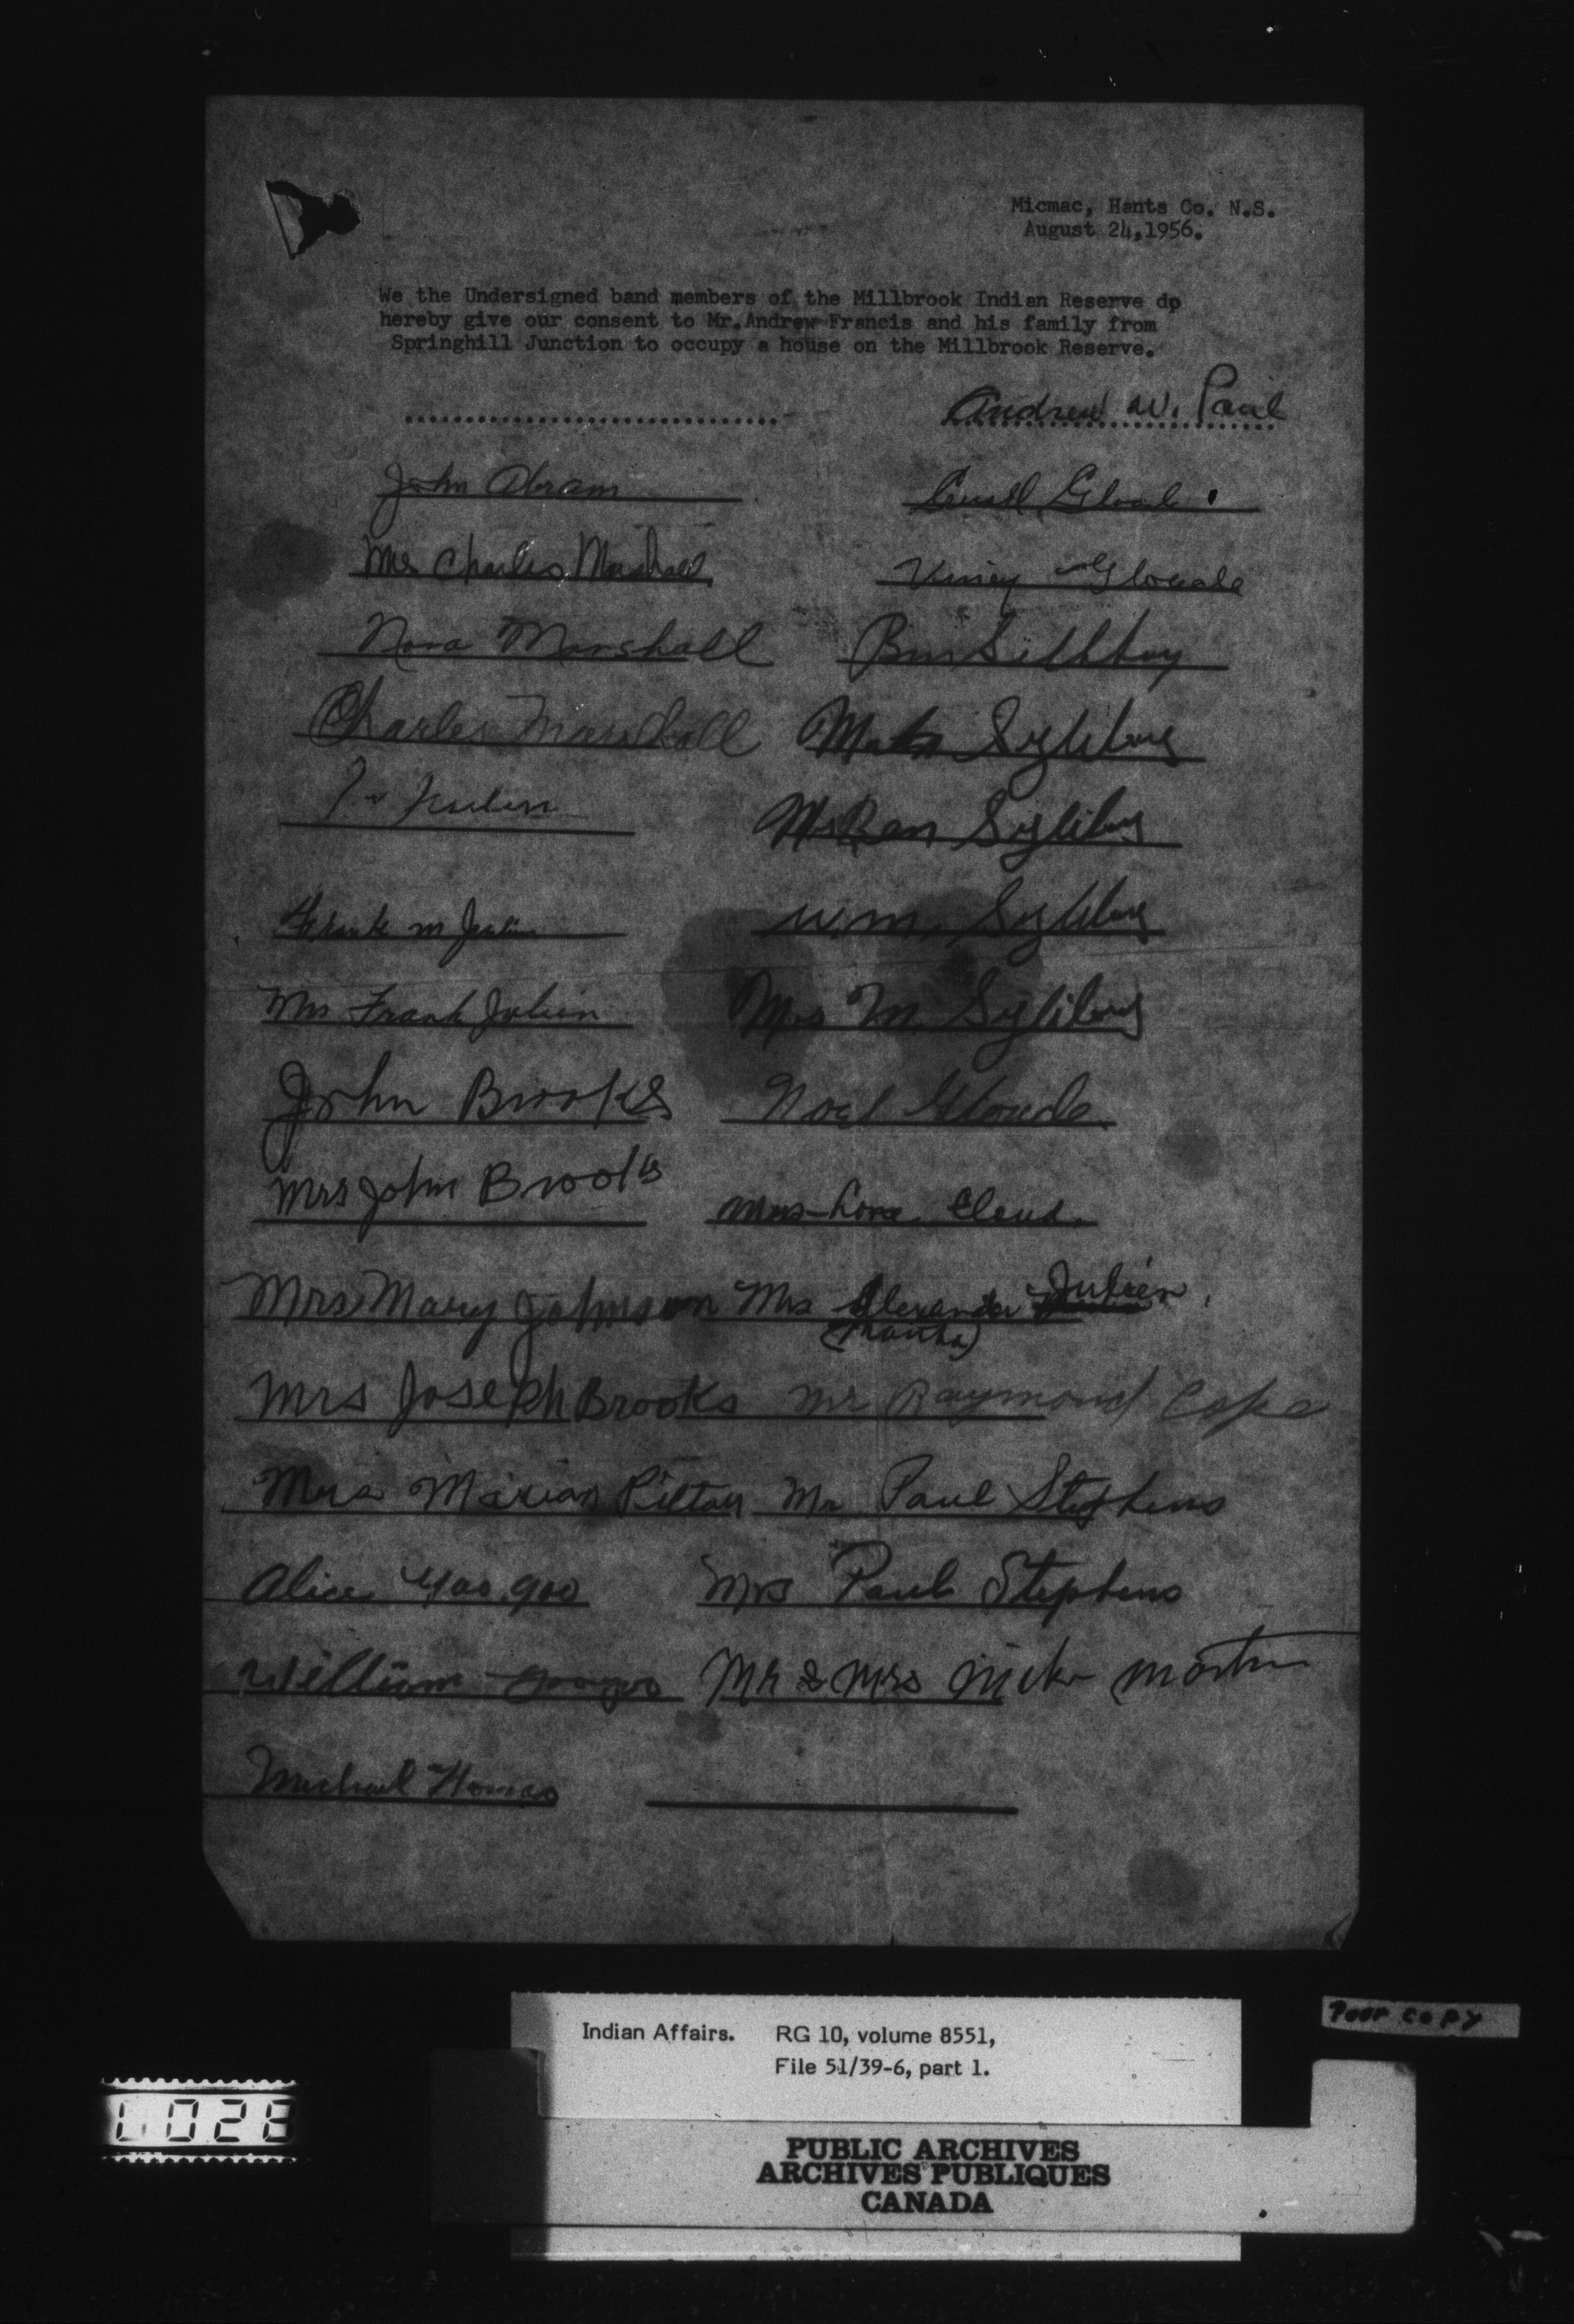 Micmac, Hants Co. N.S.
August 24,1956.
We the Undersigned band members of the Millbrook Indian Reserve do
hereby give our consent to Mr.Andrew Francis and his family from
Springhill Junction to occupy a house on the Millbrook Reserve.
Andrew W. Paul
John Abram
Mrs Charles Marshall
Nora Marshall
Charles Marshall Syliboy
Mrs Ben Syliboy
Frank M Julien Wm. Syliboy
Mrs Frank Julien Mrs M Syliboy
John Brooks Noel Gloade
Mrs John Brooks Cloud.
Mrs Mary Johnson Mrs Alexander Julien
(Martha)
Mrs Joseph Brooks Mr Raymond Cope
Mrs Marian Pictou Mr Paul Stephens
Alice Googoo Mrs Paul Stephens
William Googoo Mr & Mrs Mike Martin
Michael Thomas
Poor copy
Indian Affairs. RG 10, volume 8551,
File 51/39-6, part 1.
PUBLIC ARCHIVES
ARCHIVES PUBLIQUES
CANADA